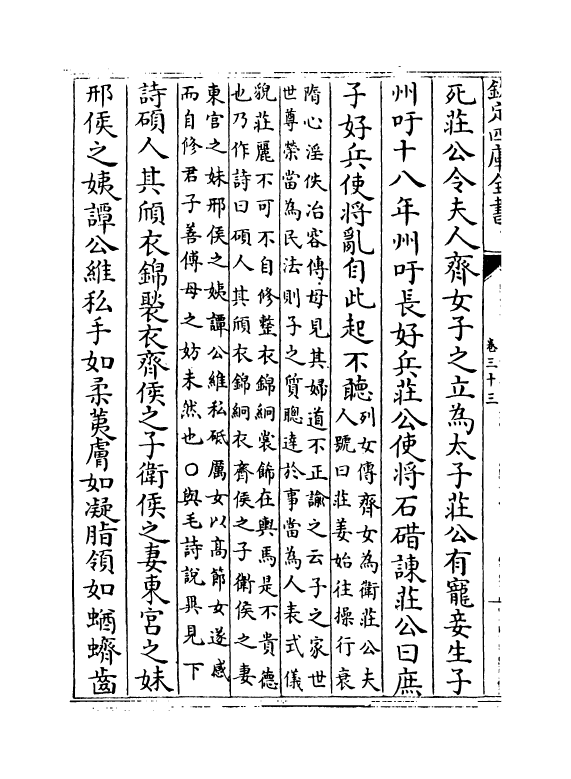 欽定四庫全書
卷三十三
死莊公令夫人齊女子之立為太子莊公有寵妾生子
州吁十八年州吁長好兵莊公使將石碏諫莊公曰庶
子好兵使將亂自此起不聽
列女傳齊女為衛莊公夫
人號曰莊姜始往操行衰
隋心淫佚冶容傅母見其婦道不正諭之云子之家世
世尊榮當為民法則子之質聰達於事當為人表式儀
貌莊麗不可不自修整衣錦絅裳飾在輿馬是不貴德
也乃作詩曰碩人其頎衣錦絅衣齊侯之子衛侯之妻
東宫之妹邢侯之姨譚公維私砥厲女以髙節女遂感
而自修君子善傅母之妨未然也○與毛詩說異見下
詩碩人其頎衣錦褧衣齊侯之子衛侯之妻東宫之妹
邢侯之姨譚公維私手如柔荑膚如凝脂領如蝤蠐齒